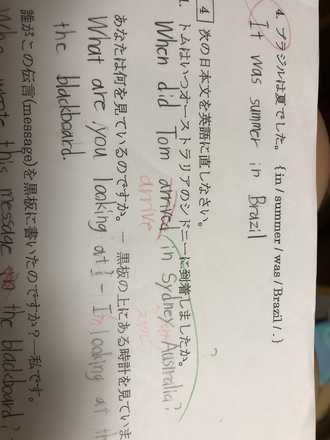 4. ブラジルは夏でした。 (in / summer / was / Brazil / .)
It was summer in Brazil
4 次の日本文を英語に直しなさい。
1. トムはいつオーストラリアのシドニーに到着しましたか。
When did Tom arrived in Sydney Australia?
arrive
?
あなたは何を見ているのですか。 ― 黒板の上にある時計を見ていま
What are you looking at? - I'm looking at th
the blackboard.
誰がこの伝言(message)を黒板に書いたのですか? ― 私です。
Who wrote this message the blackboard?